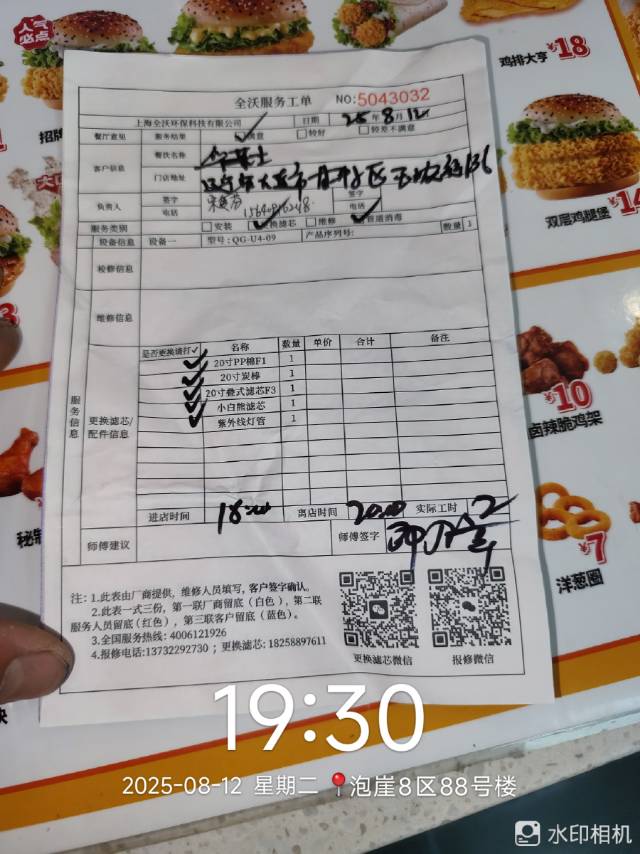 人气必点
鸡排大亨 ¥18
全沃服务工单 NO:5043032
上海全沃环保科技有限公司 日期 25 年 8 月 12
餐厅意见 服务结果 满意 较好 较差不满意
客户信息 餐饮名称
门店地址
负责人 签字 签字
电话 电话
服务类别 安装 更换滤芯 维修 管道消毒
设备信息 设备一 型号: QG-U4-09 产品序列号: 数量 1
检修信息
维修信息
服务信息
更换滤芯/配件信息
是否更换请打✓ 名称 数量 单价 合计 备注
✓ 20寸PP棉F1 1
✓ 20寸炭棒 1
✓ 20寸叠式滤芯F3 1
✓ 小白熊滤芯 1
✓ 紫外线灯管 1
进店时间 18:00 离店时间 20:00 实际工时 2
师傅建议 师傅签字
注: 1.此表由厂商提供, 维修人员填写, 客户签字确认。
2.此表一式三份, 第一联厂商留底 (白色), 第二联
服务人员留底 (红色), 第三联客户留底 (蓝色)。
3.全国服务热线: 4006121926
4.报修电话:13732292730 ; 更换滤芯: 18258897611
更换滤芯微信 报修微信
双层鸡腿堡
¥10
卤辣脆鸡架
¥7
洋葱圈
19:30
2025-08-12 星期二 泡崖8区88号楼
水印相机